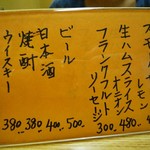 レモン
生ハムスライス
オニオン 480
フランクフルトソーセージ 300
ビール 500
日本酒 400
焼酎 380
ウイスキー 380